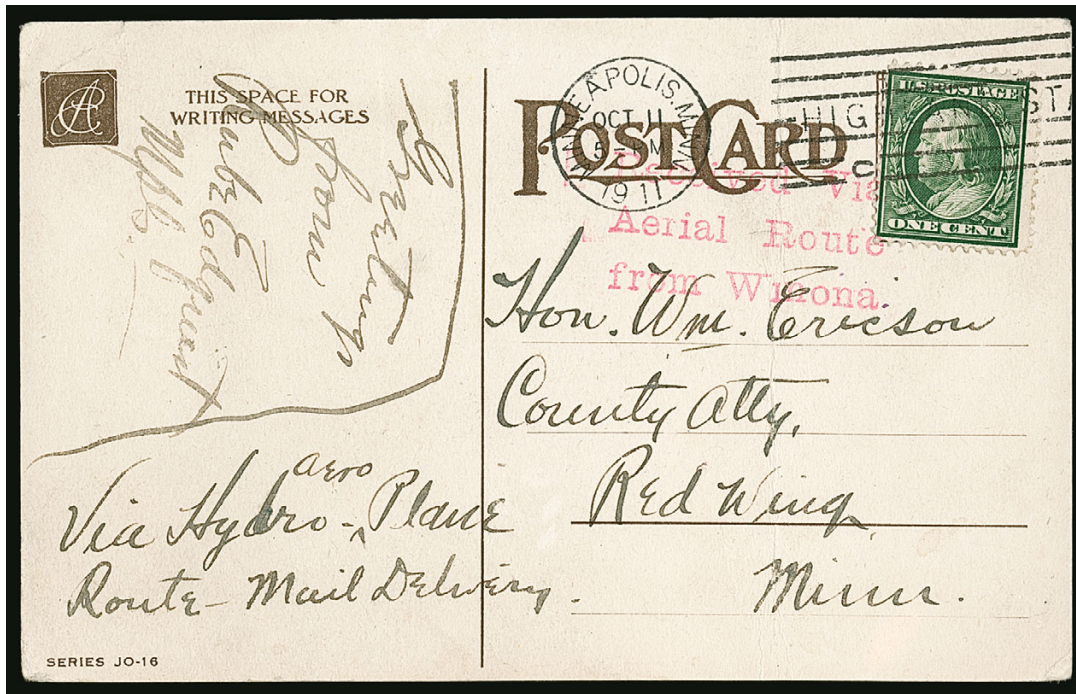 THIS SPACE FOR
WRITING MESSAGES
Greetings
from
Rube Edquist
Mpls.
Via Hydro-aero Plane
Route - Mail Delivery.
SERIES JO-16
POST CARD
MINNEAPOLIS, MINN.
OCT 11
5-PM
1911
U.S. POSTAGE
ONE CENT
Received Via
Aerial Route
from Winona.
Hon. Wm. Ericson
County Atty,
Red Wing
Minn.